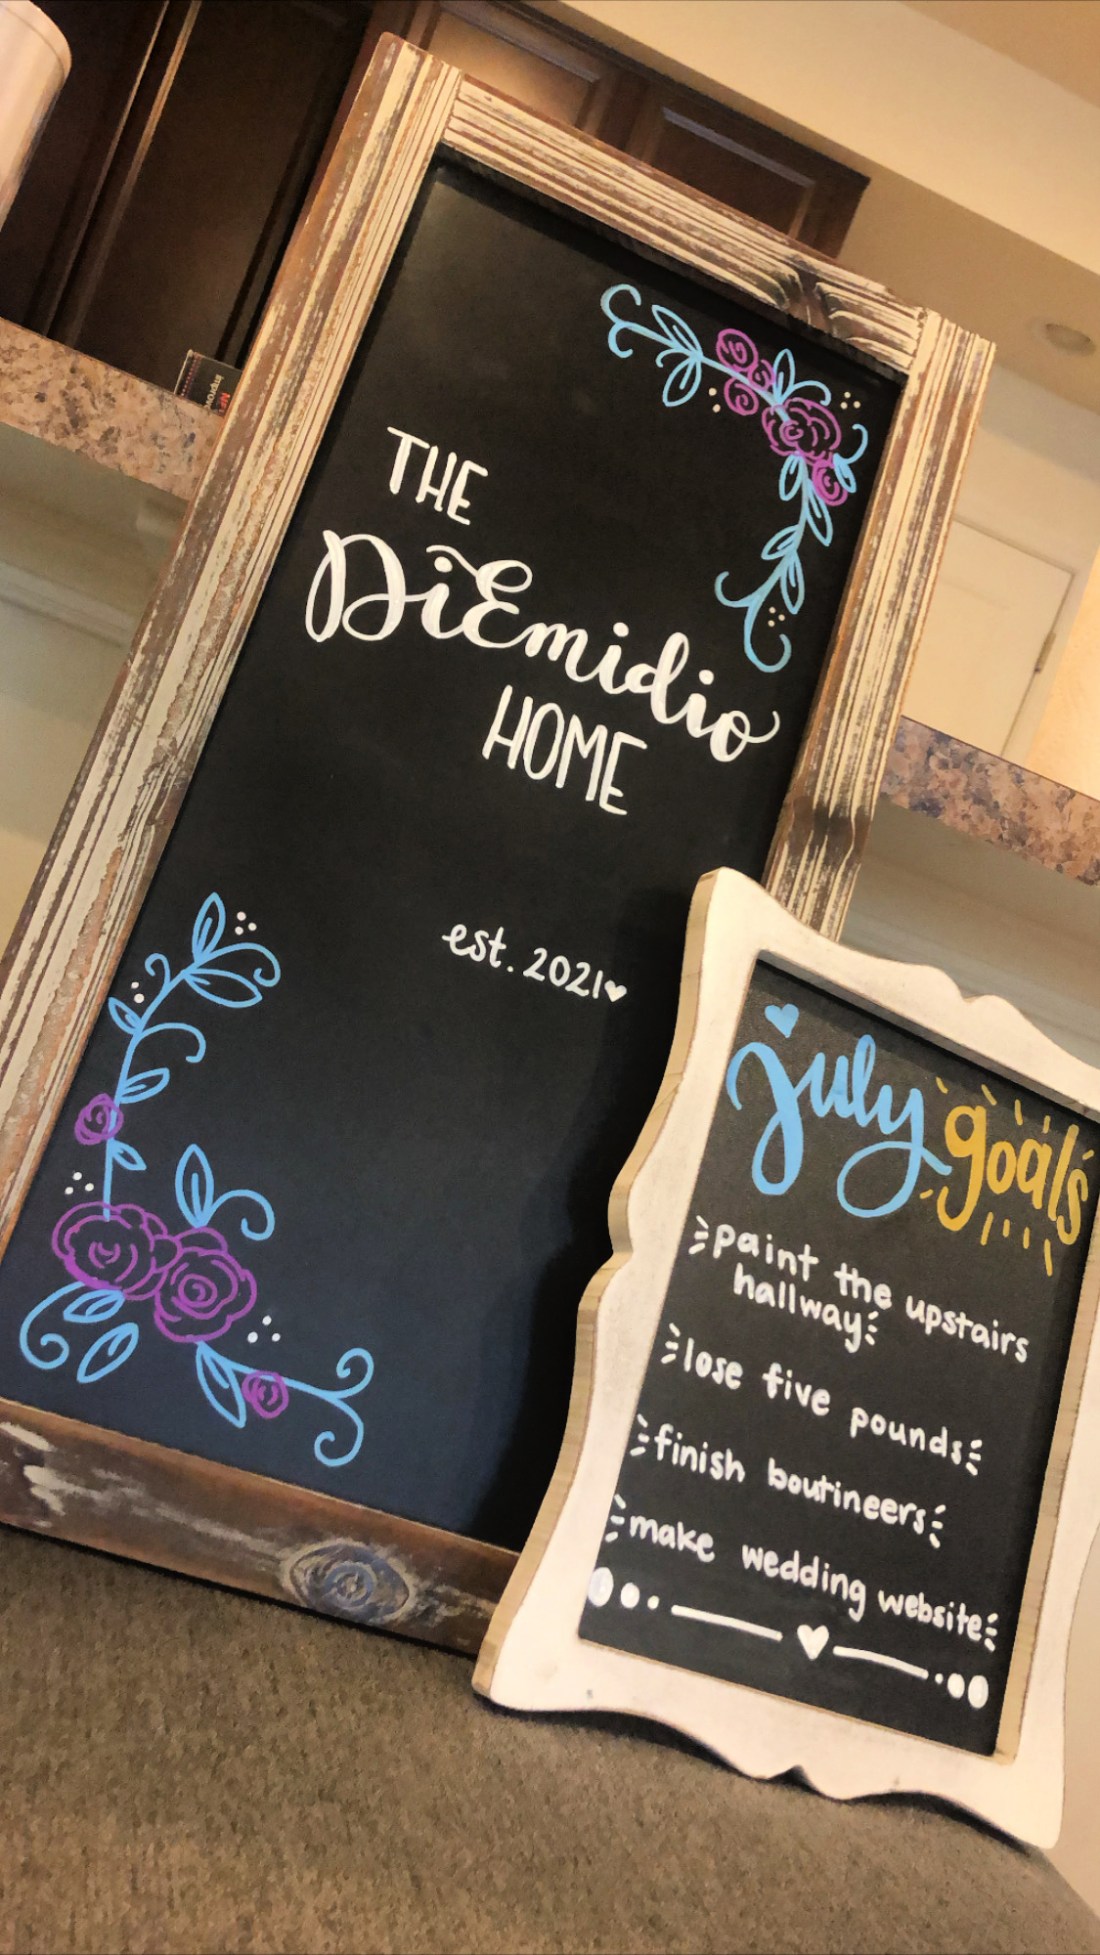 THE
DiEmidio
HOME
est. 2021♥
july goals
paint the upstairs
hallway
lose five pounds
finish boutineers
make wedding website